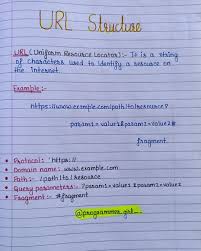 URL Structure
URL (Uniform Resource Locator):- It is a string
of characters used to identify a resource on
the internet.
Example:-
https://www.example.com/path/to/resource?
param1=value1&param2=value2#
fragment.
• Protocol: 'https://
• Domain name: www.example.com
• Path:- /path/to/resource
• Query parameters:- ?param1=value1&param2=value2
• Fragment:- #fragment
@programmer_girl_